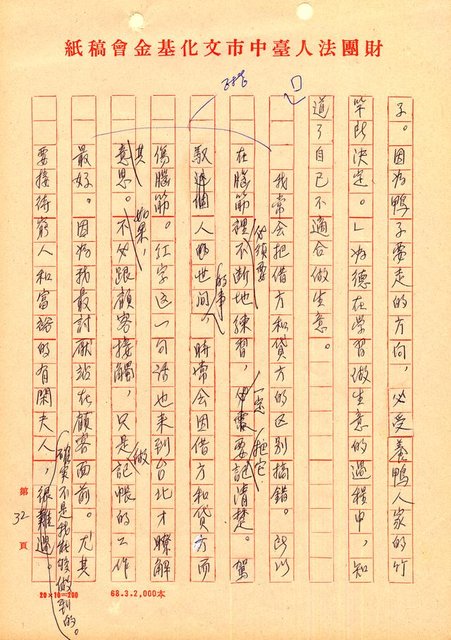 財團法人臺中市文化基金會稿紙
子。因為鴨子要走的方向,必受養鴨人家的竹
竿所決定。」為德在學習做生意的過程中,知
道了自己不適合做生意。
我常會把借方和貸方的区别搞錯。所以
必須要 一定 把它
在腦筋裡不断地練習,要記清楚。駕
的事
馭這個人的世间,時常會因借方和貸方而
傷腦筋。红字这一句话也來到台北才瞭解
其意思。如果,不必跟顧客接觸,只是做記帳的工作
最好。因為我最討厭站在顧客面前。尤其
要接待窮人和富裕的有閑夫人,很難過。
確實不是我能够做到的。
第32頁
20×10=200
68.3.2,000本